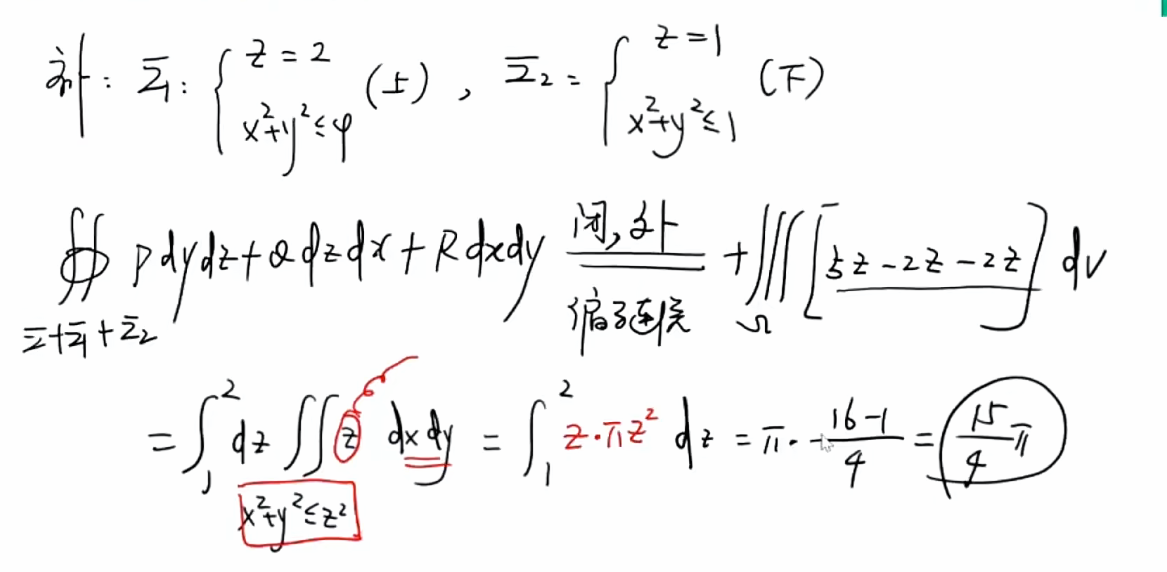 补: Σ₁: { z = 2, x²+y² ≤ 4 (上), Σ₂ = { z = 1, x²+y² ≤ 1 (下)
∯_{Σ+Σ₁+Σ₂} P dydz + Q dzdx + R dxdy ==(闭, 外 / 偏导连续)== + ∭_Ω [5z - 2z - 2z] dv
= ∫₁² dz ∬_{x²+y² ≤ z²} z dxdy = ∫₁² z·πz² dz = π· (16-1)/4 = 15/4 π